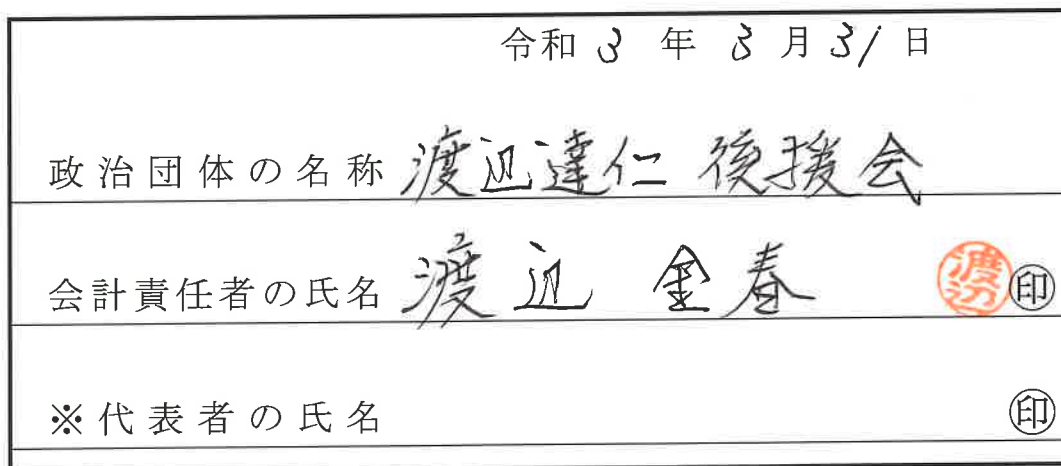 令和3年3月31日
政治団体の名称 渡辺達仁 後援会
会計責任者の氏名 渡辺 金春 渡辺 印
※代表者の氏名 印